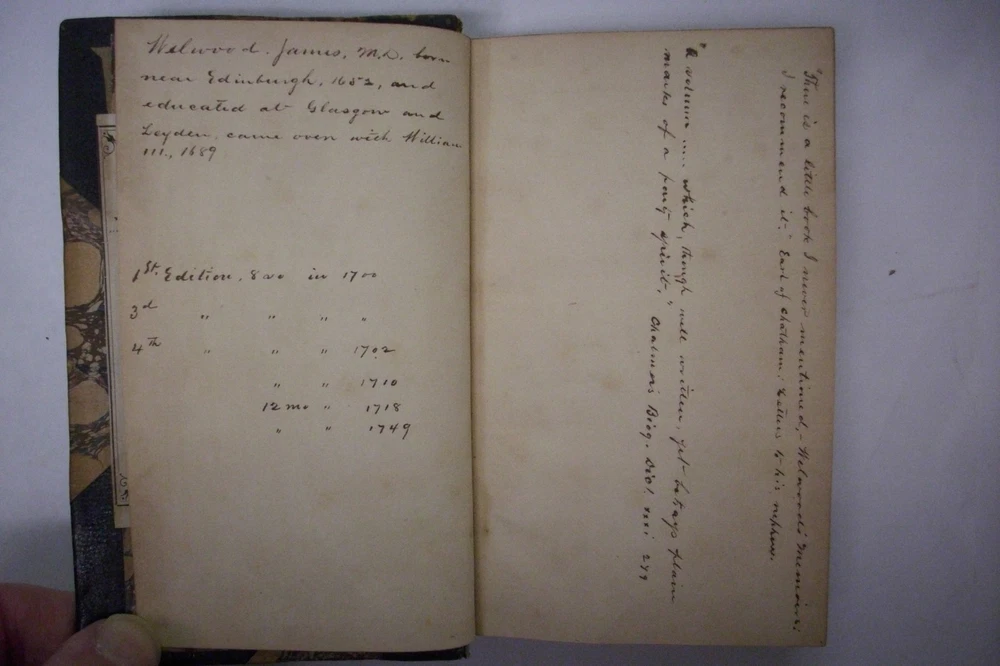 Welwood. James, M.D. born
near Edinburgh, 1652, and
educated at Glasgow and
Leyden, came over with William
III., 1689
1st. Edition, 8vo in 1700
3d " " " "
4th " " " 1702
" " 1710
12mo " 1718
" " 1749
"There is a little book I never mentioned,- Welwood's Memoirs;
I recommend it." Earl of Chatham; Letters to his nephew.
"A volume which, though well written, yet betrays plain
marks of a party spirit." Chalmers Biog. Dict.